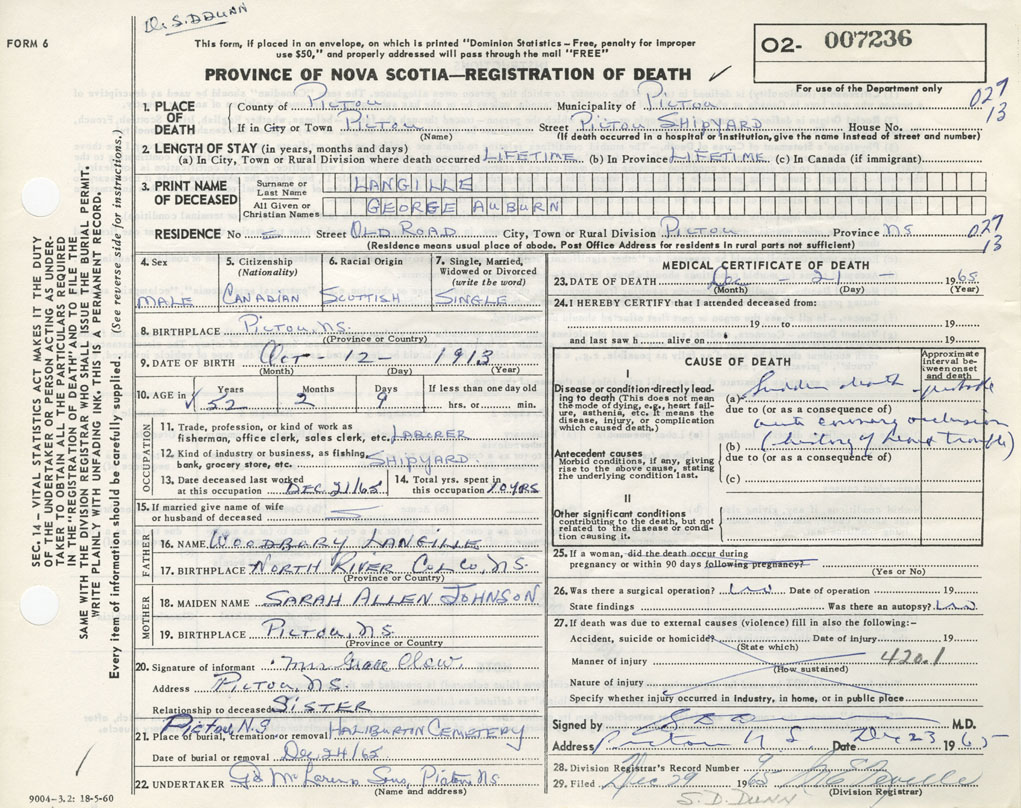 Dr. S.D DUNN
FORM 6
This form, if placed in an envelope, on which is printed "Dominion Statistics—Free, penalty for improper
use $50," and properly addressed will pass through the mail "FREE"
02- 007236
For use of the Department only
PROVINCE OF NOVA SCOTIA—REGISTRATION OF DEATH ✓
027
13
1. PLACE OF DEATH { County of Pictou Municipality of Pictou
If in City or Town Pictou Street Pictou Shipyard House No.
(Name) (If death occurred in a hospital or institution, give the name instead of street and number)
2. LENGTH OF STAY (in years, months and days)
(a) In City, Town or Rural Division where death occurred LIFETIME (b) In Province LIFETIME (c) In Canada (if immigrant)
3. PRINT NAME OF DECEASED { Surname or Last Name LANGILLE
All Given or Christian Names GEORGE AUBURN
RESIDENCE No. — Street OLD ROAD City, Town or Rural Division PICTOU Province NS
(Residence means usual place of abode. Post Office Address for residents in rural parts not sufficient)
027
13
4. Sex MALE
5. Citizenship (Nationality) CANADIAN
6. Racial Origin SCOTTISH
7. Single, Married, Widowed or Divorced (write the word) SINGLE
8. BIRTHPLACE PICTOU, NS.
(Province or Country)
9. DATE OF BIRTH Oct - 12 - 1913
(Month) (Day) (Year)
10. AGE in ✓ Years 52 Months 2 Days 9 If less than one day old hrs. or min.
OCCUPATION
11. Trade, profession, or kind of work as fisherman, office clerk, sales clerk, etc. LABORER
12. Kind of industry or business, as fishing, bank, grocery store, etc. SHIPYARD
13. Date deceased last worked at this occupation DEC. 21/65
14. Total yrs. spent in this occupation 10 YRS
15. If married give name of wife or husband of deceased —
FATHER
16. NAME WOODBURY LANGILLE
17. BIRTHPLACE NORTH RIVER COL CO, N.S.
(Province or Country)
MOTHER
18. MAIDEN NAME SARAH ALLEN JOHNSON
19. BIRTHPLACE PICTOU, N.S.
(Province or Country
20. Signature of informant Mrs
Address PICTOU, N.S.
Relationship to deceased SISTER
Pictou, N.S
21. Place of burial, cremation or removal HALIBURTIN CEMETERY
Date of burial or removal Dec 24/65
22. UNDERTAKER Sons, Pictou NS
(Name and address)
9004—3.2: 18-5-60
MEDICAL CERTIFICATE OF DEATH
23. DATE OF DEATH Dec - 21 - 1965
(Month) (Day) (Year)
24. I HEREBY CERTIFY that I attended deceased from:
19 to 19
and last saw h alive on 19
CAUSE OF DEATH
Approximate interval between onset and death
I
Disease or condition directly leading to death (This does not mean the mode of dying, e.g., heart failure, asthenia, etc. It means the disease, injury, or complication which caused death.)
(a) Sudden death - probable
due to (or as a consequence of)
acute coronary occlusion
Antecedent causes
Morbid conditions, if any, giving rise to the above cause, stating the underlying condition last.
(b) (history of heart trouble)
due to (or as a consequence of)
(c)
II
Other significant conditions
contributing to the death, but not related to the disease or condition causing it.
25. If a woman, did the death occur during
pregnancy or within 90 days following pregnancy?
(Yes or No)
26. Was there a surgical operation? Date of operation 19
State findings Was there an autopsy?
27. If death was due to external causes (violence) fill in also the following:—
Accident, suicide or homicide? Date of injury 19
(State which)
Manner of injury 420.1
(How sustained)
Nature of injury
Specify whether injury occurred in industry, in home, or in public place
Signed by M.D.
Address Pictou N S Date Dec 23 1965
28. Division Registrar's Record Number 9
29. Filed Dec 29 1965
(Division Registrar)
S.D. DUNN
SEC. 14 – VITAL STATISTICS ACT MAKES IT THE DUTY
OF THE UNDERTAKER OR PERSON ACTING AS UNDER-
TAKER TO OBTAIN ALL THE PARTICULARS REQUIRED
IN THE "REGISTRATION OF DEATH" AND TO FILE THE
SAME WITH THE DIVISION REGISTRAR WHO SHALL ISSUE THE BURIAL PERMIT.
WRITE PLAINLY WITH UNFADING INK. THIS IS A PERMANENT RECORD.
Every item of information should be carefully supplied. (See reverse side for instructions.)